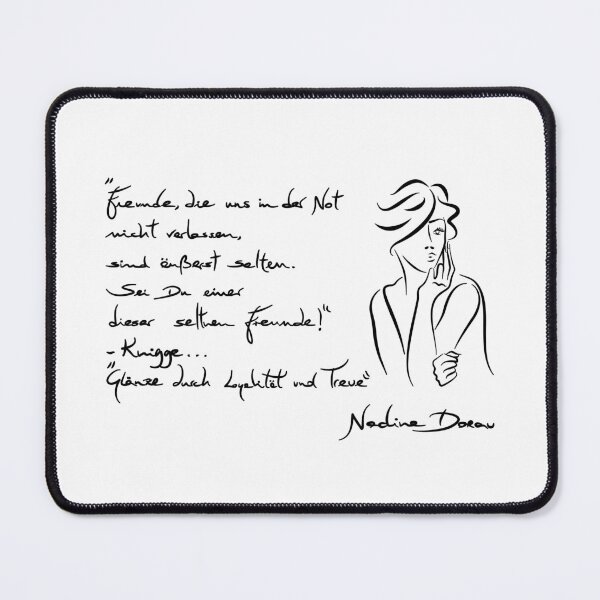 "Freunde, die uns in der Not
nicht verlassen,
sind äußerst selten.
Sei Du einer
dieser seltnen Freunde!"
- Knigge...
"Glänze durch Loyalität und Treue"
Nadine Dorau